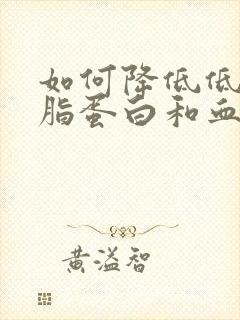 如何降低低
脂蛋白和血
黄溢智